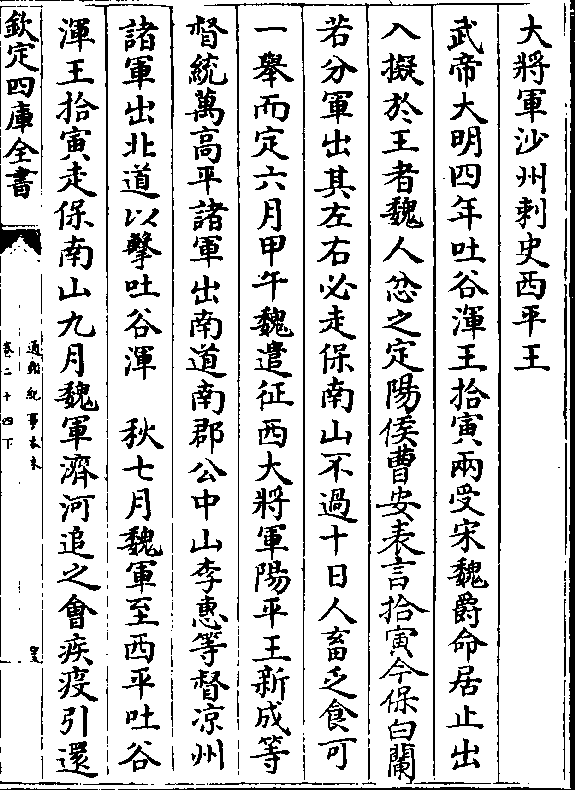 大將軍沙州刺史西平王
武帝大明四年吐谷渾王拾寅兩受宋魏爵命居止出
入擬於王者魏人忿之定陽侯曹安表言拾寅今保白蘭
若分軍出其左右必走保南山不過十日人畜乏食可
一舉而定六月甲午魏遣征西大將軍陽平王新成等
督統萬高平諸軍出南道南郡公中山李惠等督凉州
諸軍出北道以擊吐谷渾　秋七月魏軍至西平吐谷
渾王拾寅走保南山九月魏軍濟河追之會疾疫引還
欽定四庫全書
通鑑紀事本末
卷二十四下